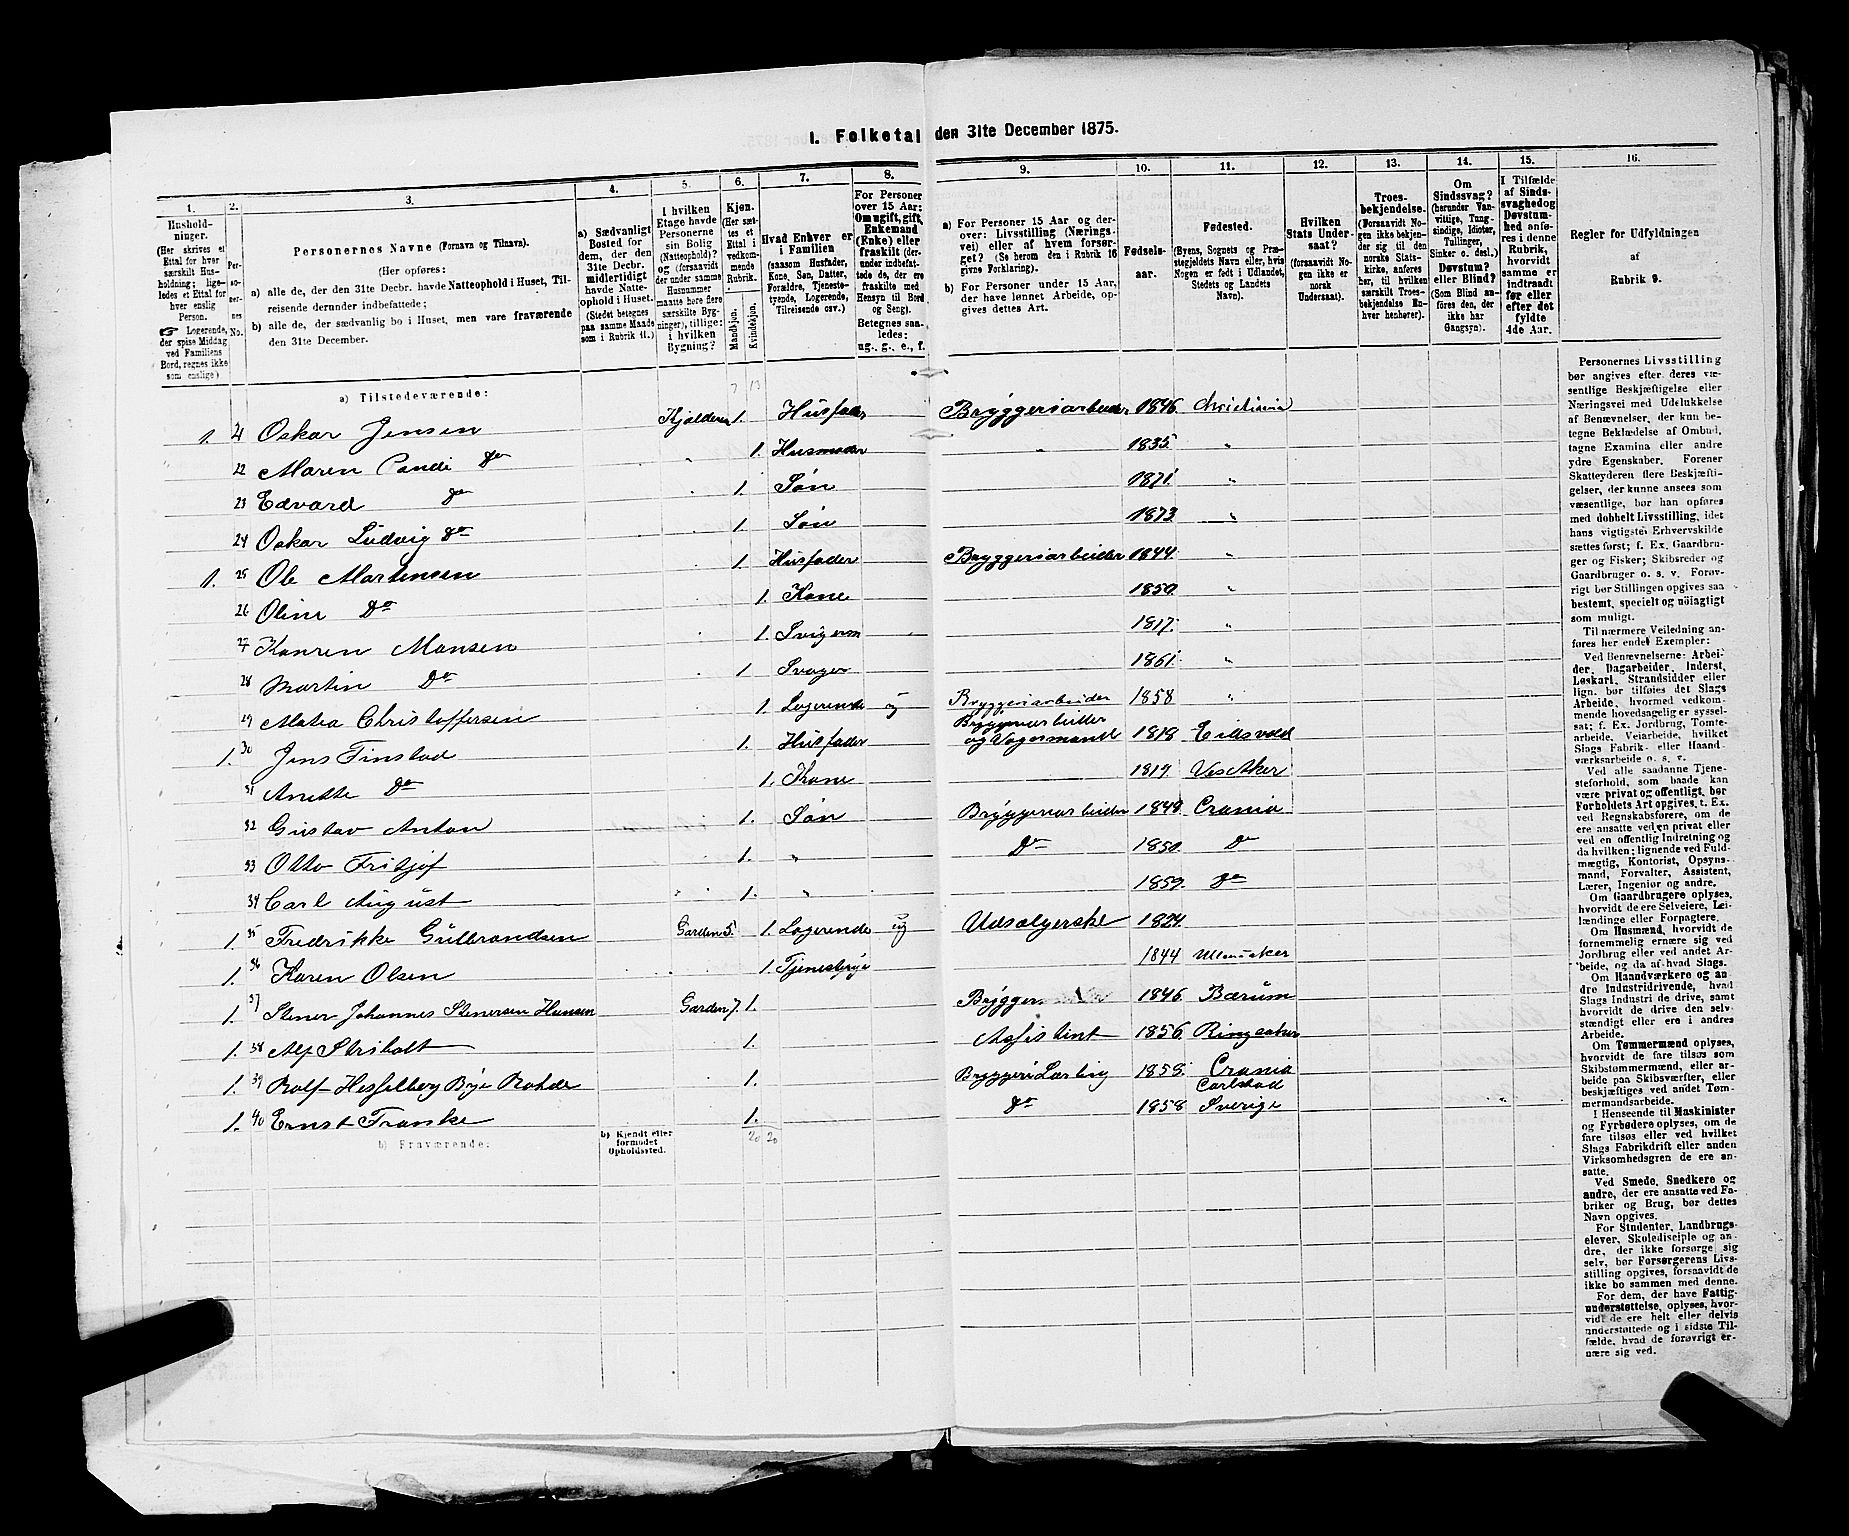 1. Folketal den 31te December 1875.
1. 2. 3. 4. 5. 6. 7. 8. 9. 10. 11. 12. 13. 14. 15. 16.
Hushold-
ninger.
(Her skrives et
Ettal for hver
særskilt Hus-
holdning; lige-
ledes et Ettal for
hver enslig
Person.
☞ Logerende,
der spise Middag
ved Familiens
Bord, regnes ikke
som enslige)
Per-
so-
ner-
nes
No.
Personernes Navne (Fornavn og Tilnavn).
(Her opføres:
a) alle de, der den 31te Decbr. havde Natteophold i Huset, Til-
reisende derunder indbefattede;
b) alle de, der sædvanlig bo i Huset, men vare fraværende
den 31te December.
a) Sædvanligt
Bosted for
dem, der den
31te Decbr.
havde Natte-
midlertidigt
ophold i Huset.
(Stedet betegnes
paa samme Maade
som i Rubrik 11.)
I hvilken
Etage havde
Personerne
sin Bolig
(Natteophold)?
og (forsaavidt
der under samme
Husnummer
maatte høre flere
særskilte Byg-
ninger), tillige:
i hvilken
Bygning?
Kjøn.
(Her sæt-
tes et
Ettal i
vedkom-
mende
Rubrik.
Mandkjøn.
Kvindekjøn.
Hvad Enhver er
i Familien
(saasom Husfader,
Kone, Søn, Datter,
Forældre, Tjeneste-
tyende, Logerende,
Tilreisende osv.)
For Personer
over 15 Aar:
Om ugift, gift,
Enkemand
(Enke) eller
fraskilt (der-
under indbefat-
tede de, der ere
fraskilte med
Hensyn til Bord
og Seng).
Betegnes saa-
ledes:
ug., g., e., f.
a) For Personer 15 Aar og der-
over: Livsstilling (Nærings-
vei) eller af hvem forsør-
get? (Se herom den i Rubrik 16
givne Forklaring).
b) For Personer under 15 Aar,
der have lønnet Arbeide, op-
gives dettes Art.
Fødsels-
aar.
Fødested.
(Byens, Sognets og Præ-
stegjeldets Navn eller, hvis
Nogen er født i Udlandet,
Stedets og Landets
Navn).
Hvilken
Stats Under-
saat?
(forsaavidt No-
gen ikke er
norsk
Undersaat).
Troes-
bekjendelse.
(Forsaavidt No-
gen ikke bekjen-
der sig til den
norske Stats-
kirke, anføres
her, til hvilken
særskilt Troes-
bekjendelse En-
hver henhører).
Om
Sindssvag?
(herunder Van-
vittige, Tung-
sindige, Idioter,
Tullinger,
Sinker o. desl.)
Døvstum?
eller Blind?
(Som Blind an-
føres den, der
ikke har
Gangsyn).
I Tilfælde
af Sinds-
svaghed og
Døvstum-
hed anfø-
res i denne
Rubrik,
hvorvidt
samme er
indtraadt
før eller
efter det
fyldte
4de Aar.
Regler for Udfyldningen
af
Rubrik 9.
a) Tilstedeværende:
7 13
1. 21 Oskar Jensen Kjælderen 1. Husfader Bryggeriarbeider 1846 Christiania
22 Maren Do „ 1. Husmoder „ 1835 „
23 Edvard Do 1. Søn 1871. „
24 Oskar Ludvig Do 1. Søn 1873 „
1. 25 Ole Martensen 1. Husfader Bryggeriarbeider 1844 „
26 Oline Do 1. Kone 1850. „
27 Kanren Mansen 1. Svigerm 1817. „
28 Martin Do 1 Svoger 1861. „
29 Matea Christoffersen 1. Logerende ug Bryggeriarbeider 1858 „
1. 30 Jens Finstad 1. Husfader Bryggeriarbeider
og Vogermand 1818 Eidsvold
31 Anette Do 1. Kone 1817. Vest Aker
32 Gustav Anton 1. Søn Bryggeriarbeider 1848 Crania
33 Otto Fritjof 1. „ Do 1850. Do
34 Carl August 1. „ 1859. Do
1. 35 Fredrikke Gulbrandsen Garden 5. 1. Logerende ug Udsalgerske 1824.
1. 36 Karen Olsen 1. 1844 Ullensaker
1. 37 Stener Johannes Stenersen Hansen Garden 7. 1. Brygger 1846 Bærum
1. 38 Alf Striboldt 1. Assistent 1856 Ringsaker
1. 39 Rolf Hesselberg Bye Rohde 1. Bryggeri Lærling 1858. Crania
1. 40 Ernst Franke 1. Do 1858 Carlstad
Sverige
20 20
b) Fraværende:
b) Kjendt eller
formodet
Opholdssted.
Personernes Livsstilling
bør angives efter deres væ-
sentlige Beskjæftigelse eller
Næringsvei med Udelukkelse
af Benævnelser, der kun be-
tegne Beklædelse af Ombud,
tagne Examina eller andre
ydre Egenskaber. Forener
Skatteyderen flere Beskjæfti-
gelser, der kunne ansees som
væsentlige, bør han opføres
med dobbelt Livsstilling, idet
hans vigtigste Erhvervskilde
sættes først; f. Ex. Gaardbru-
ger og Fisker; Skibsreder og
Gaardbruger o. s. v. Forøv-
rigt bør Stillingen opgives saa
bestemt, specielt og nöiagtigt
som muligt.
Til nærmere Veiledning an-
føres her endel Exempler:
Ved Benævnelserne: Arbei-
der, Dagarbeider, Inderst,
Løskarl, Strandsidder eller
lign. bør tilføies det Slags
Arbeide, hvormed vedkom-
mende hovedsagelig er syssel-
sat; f. Ex. Jordbrug, Tomte-
arbeide, Veiarbeide, hvilket
Slags Fabrik- eller Haand-
værksarbeide o. s. v.
Ved alle saadanne Tjene-
steforhold, som baade kan
være privat og offentligt, bør
Forholdets Art opgives, t. Ex.
ved Regnskabsførere, om de
ere ansatte ved en privat eller
ved en offentlig Indretning og
da hvilken; lignende ved Fuld-
mægtig, Kontorist, Opsyns-
mand, Forvalter, Assistent,
Lærer, Ingeniør og andre.
Om Gaardbrugere oplyses,
hvorvidt de ere Selveiere, Lei-
lændinge eller Forpagtere.
Om Husmænd, hvorvidt de
fornemmelig ernære sig ved
Jordbrug eller ved andet Ar-
beide, og da af hvad Slags.
Om Haandværkere og an-
dre Industridrivende, hvad
Slags Industri de drive, samt
hvorvidt de drive den selv-
stændigt eller ere i andres
Arbeide.
Om Tømmermænd oplyses,
hvorvidt de fare tilsøs som
Skibstømmermænd, eller ar-
beide paa Skibsværfter, eller
beskjæftiges ved andet Tøm-
mermandsarbeide.
I Henseende til Maskinister
og Fyrbødere oplyses, om de
fare tilsøs eller ved hvilket
Slags Fabrikdrift eller anden
Virksomhedsgren de ere an-
satte.
Ved Smede, Snedkere og
andre, der ere ansatte ved Fa-
briker og Brug, bør dettes
Navn opgives.
For Studenter, Landbrugs-
elever, Skoledisciple og an-
dre, der ikke forsørge sig
selv, bør Forsørgerens Livs-
stilling opgives, forsaavidt de
ikke bo sammen med denne.
For dem, der have Fattig-
understøttelse, oplyses, hvor-
vidt de ere helt eller delvis
understøttede og i sidste Til-
fælde, hvad de forøvrigt er-
nære sig ved.